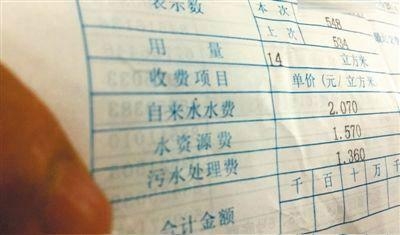 表示数 本次 548
上次 534
用量 14 立方米
收费项目 单价(元/立方米
自来水水费 2.070
水资源费 1.570
污水处理费 1.360
千百十万千
合计金额